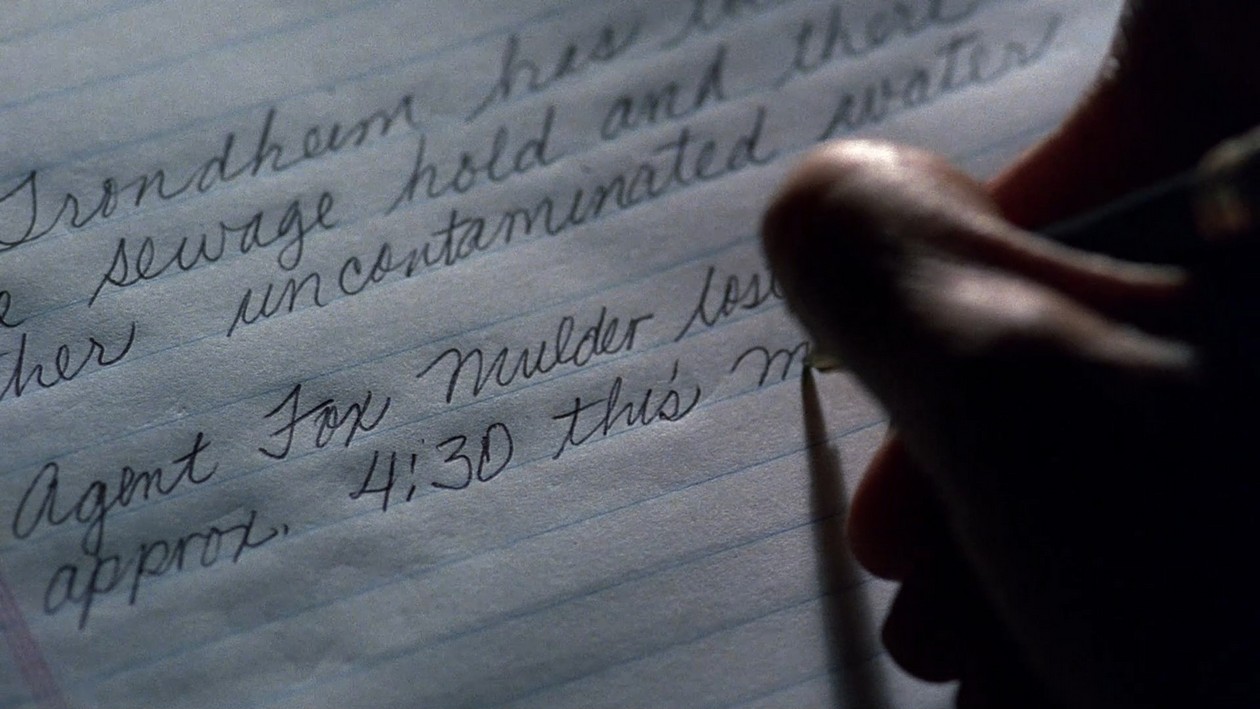 Trondheim has
sewage hold and there
uncontaminated water
Agent Fox Mulder lost
approx. 4:30 this m